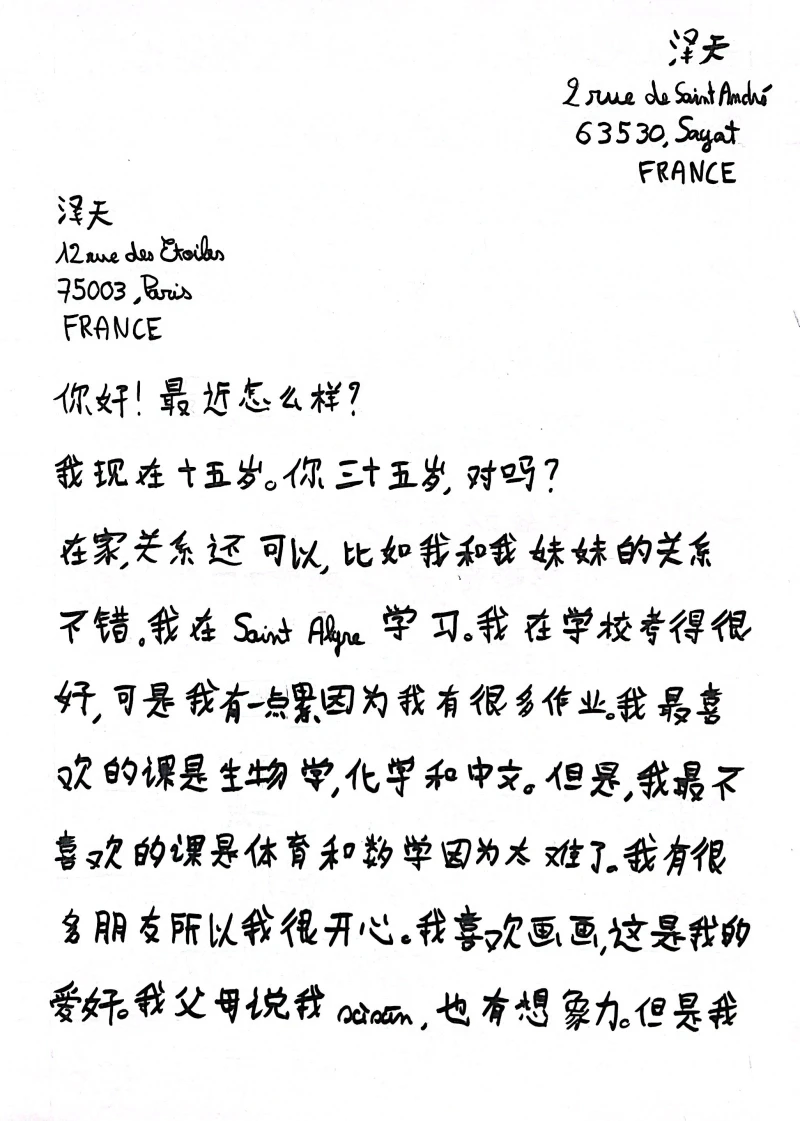 泽天
2 rue de Saint André
63530, Sayat
FRANCE
泽天
12 rue des Etoiles
75003, Paris
FRANCE
你好！最近怎么样？
我现在十五岁。你三十五岁，对吗？
在家，关系还可以，比如我和我妹妹的关系
不错。我在 Saint Alyre 学习。我在学校考得很
好，可是我有一点累因为我有很多作业。我最喜
欢的课是生物学，化学和中文。但是，我最不
喜欢的课是体育和数学因为太难了。我有很
多朋友所以我很开心。我喜欢画画，这是我的
爱好。我父母说我，也有想象力。但是我